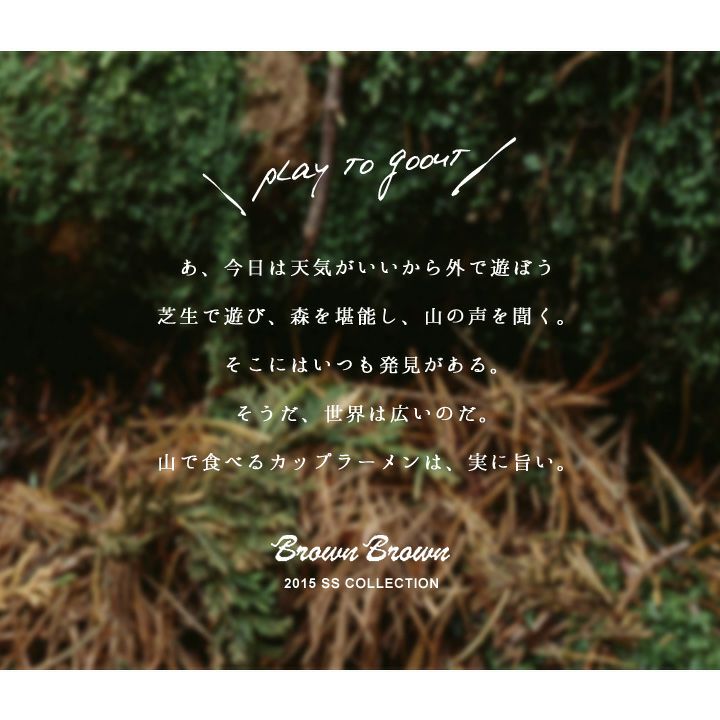 PLAY TO GOOUT
あ、今日は天気がいいから外で遊ぼう
芝生で遊び、森を堪能し、山の声を聞く。
そこにはいつも発見がある。
そうだ、世界は広いのだ。
山で食べるカップラーメンは、実に旨い。
Brown Brown
2015 SS COLLECTION